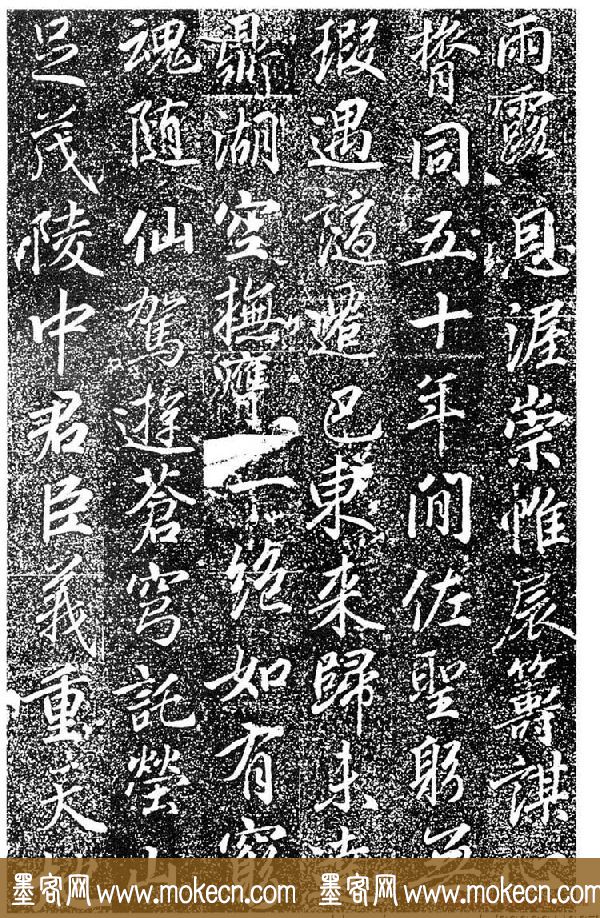 雨露恩渥崇帷展籌謀心
膂同五十年間佐聖躬
瑕遇謫遷已東來歸未
鼎湖空撫膺一慟絕如有窮
魂隨仙駕遊蒼穹託塋山
足茂陵中君臣義重天
墨客网 www.mokecn.com 墨客网 www.mokecn.com